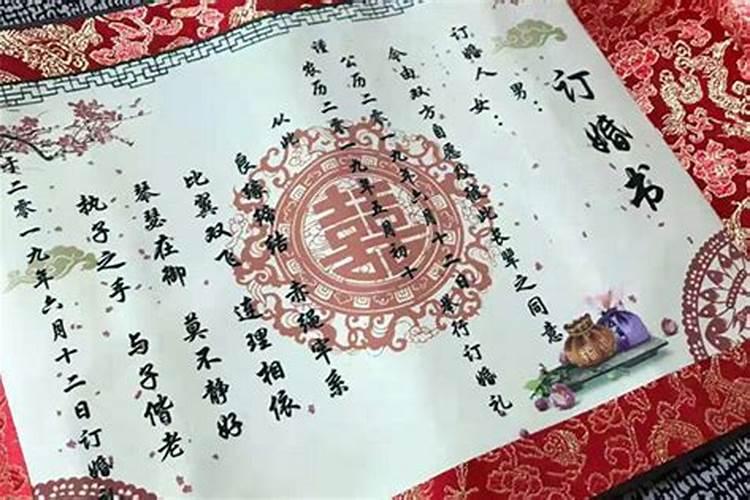 订婚书
男：
订婚人女：
今由双方自愿及
此长辈之同意
谨
公历二零一九年六月十二日举行订婚礼
农历二零一九年五月初十
从此
良缘缔结 赤绳牢系
比翼双飞 连理相依
琴瑟在御 莫不静好
执子之手 与子偕老
于二零一九年六月十二日订婚